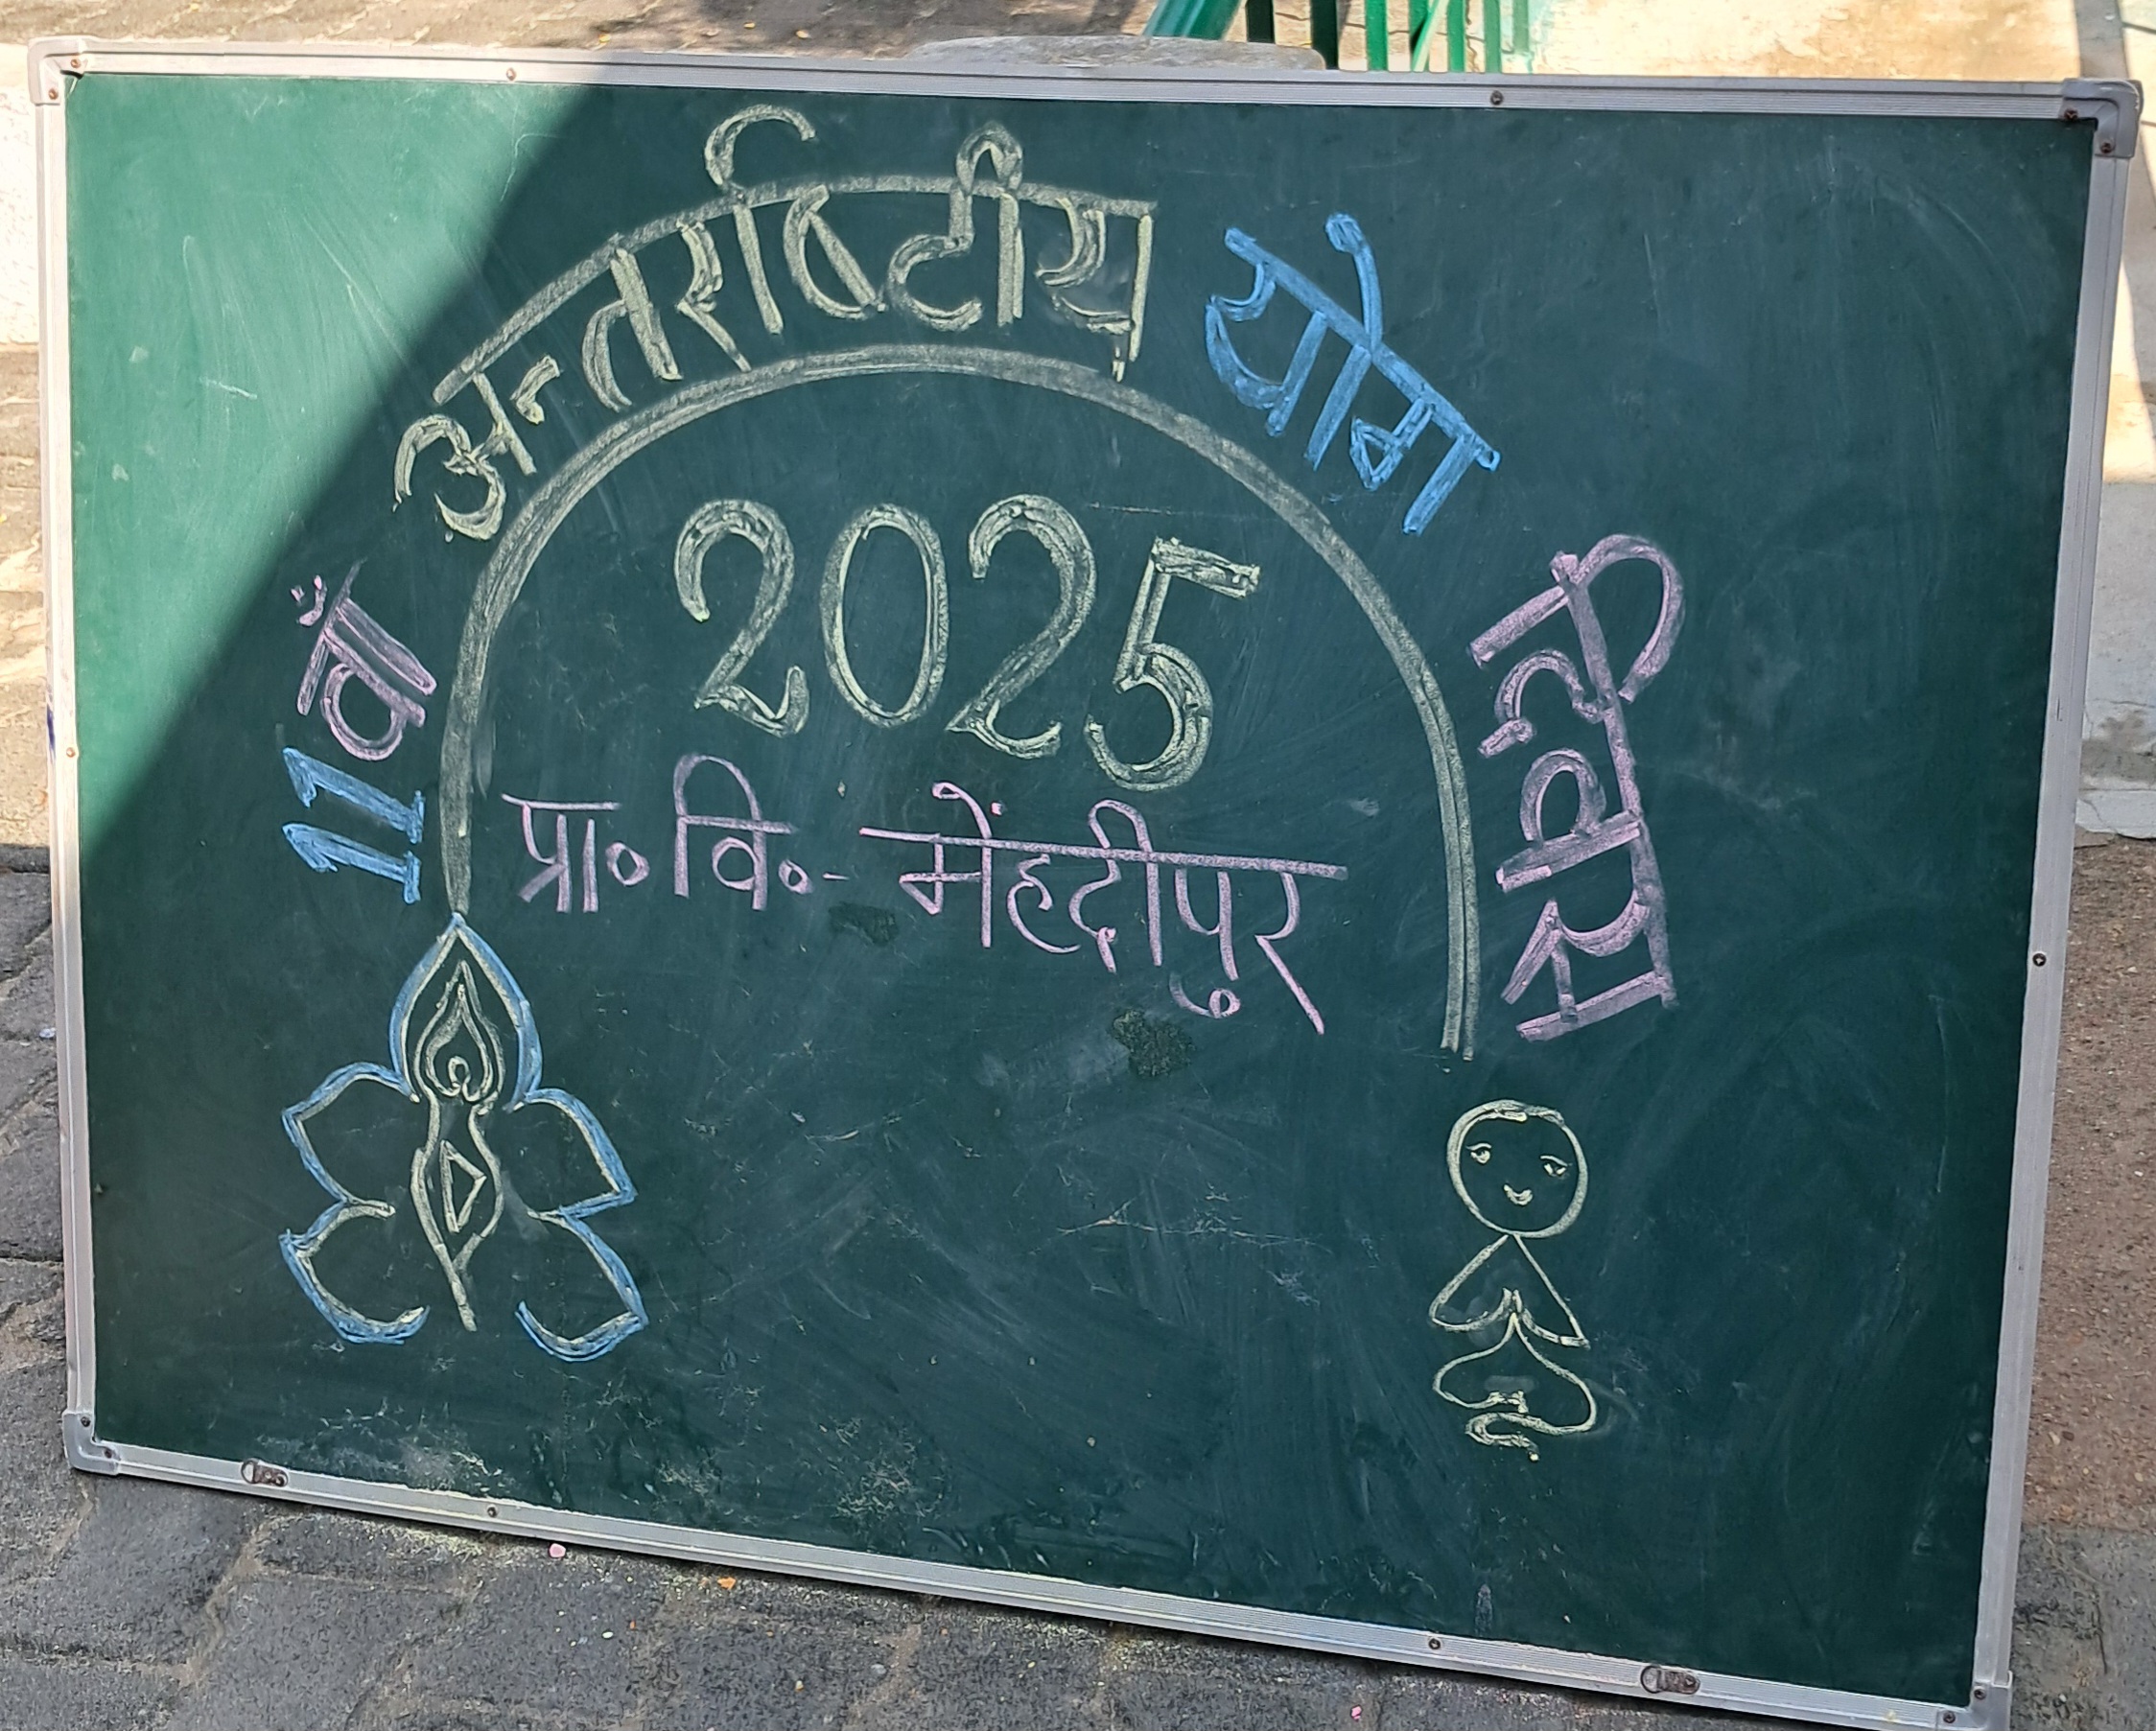 11वाँ अन्तर्राष्टीय योग दिवस
2025
प्रा॰ वि॰- मेंहदीपुर